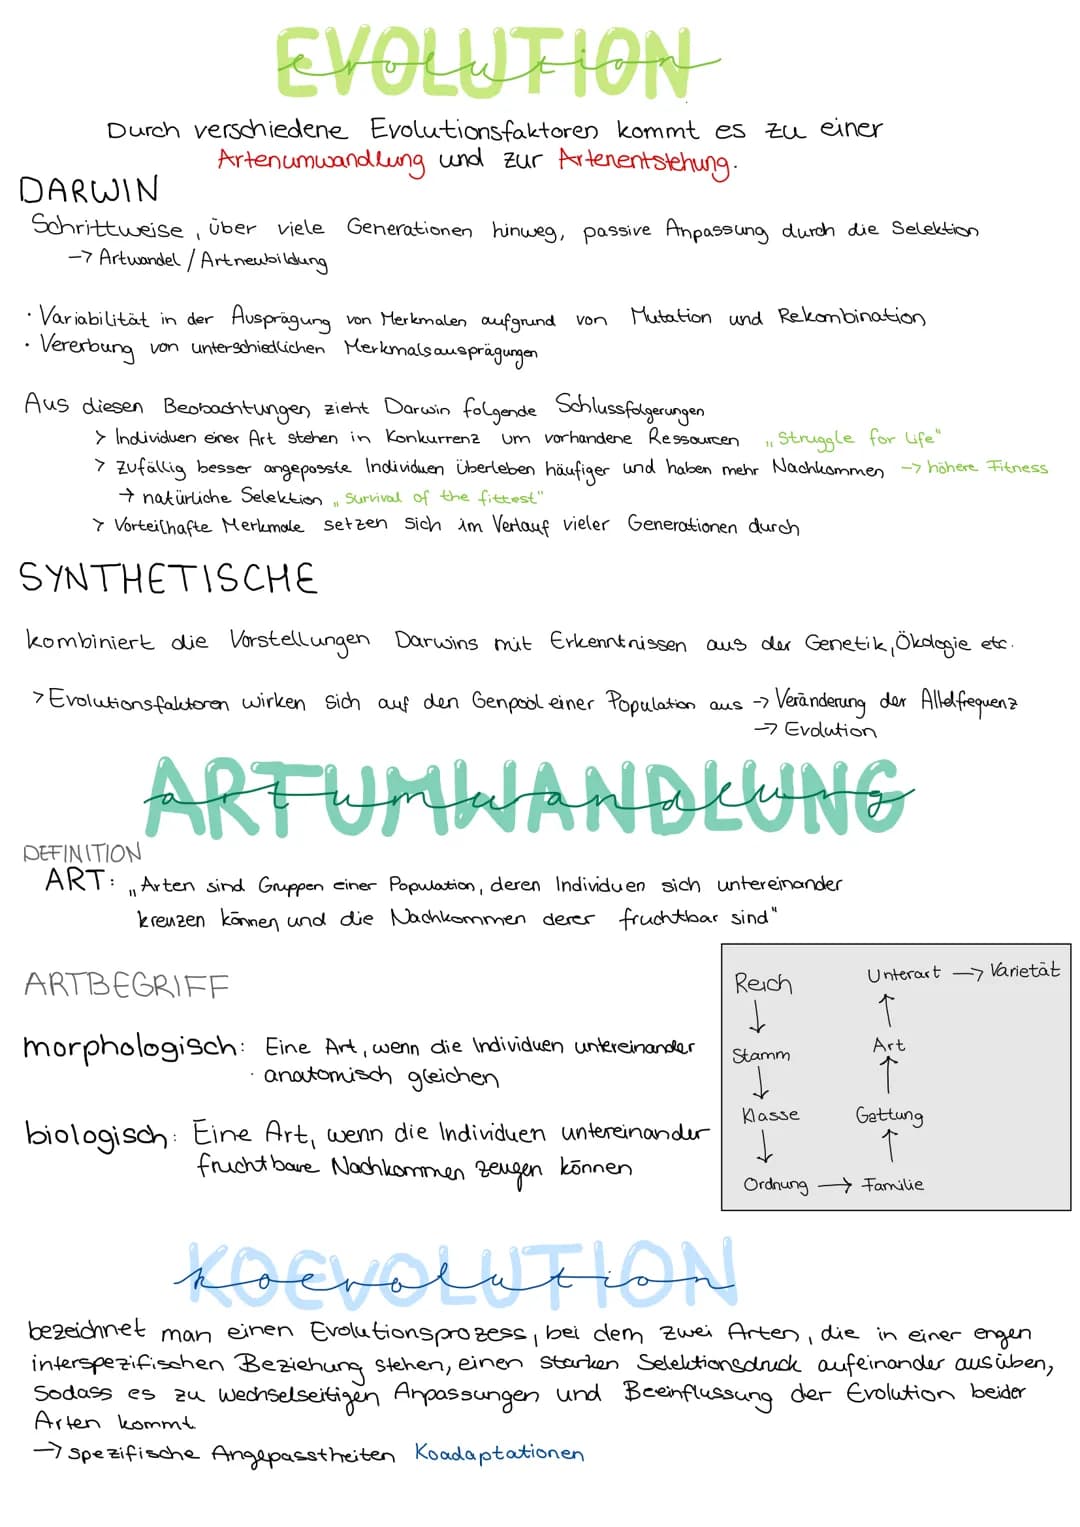 EVOLUTION
evolution
Durch verschiedene Evolutionsfaktoren kommt es zu einer
Artenumwandlung und zur Artenentstehung.
DARWIN
Schrittweise, über viele Generationen hinweg, passive Anpassung durch die Selektion
-> Artwandel / Artneubildung
· Variabilität in der Ausprägung von Merkmalen aufgrund von Mutation und Rekombination
· Vererbung von unterschiedlichen Merkmalsausprägungen
Aus diesen Beobachtungen zieht Darwin folgende Schlussfolgerungen
> Individuen einer Art stehen in Konkurrenz um vorhandene Ressourcen „Struggle for life"
> zufällig besser angepasste Individuen überleben häufiger und haben mehr Nachkommen -> höhere Fitness
-> natürliche Selektion „Survival of the fittest"
> Vorteilhafte Merkmale setzen sich im Verlauf vieler Generationen durch
SYNTHETISCHE
kombiniert die Vorstellungen Darwins mit Erkenntnissen aus der Genetik, Ökologie etc.
> Evolutionsfaktoren wirken sich auf den Genpool einer Population aus -> Veränderung der Allelfrequenz
-> Evolution
ARTUMWANDLUNG
artumwandlung
DEFINITION
ART: „Arten sind Gruppen einer Population, deren Individuen sich untereinander
kreuzen können und die Nachkommen derer fruchtbar sind"
ARTBEGRIFF
morphologisch: Eine Art, wenn die Individuen untereinander
· anatomisch gleichen
biologisch: Eine Art, wenn die Individuen untereinander
fruchtbare Nachkommen zeugen können
Reich
↓
Stamm
↓
Klasse
↓
Ordnung -> Familie
↑
Gattung
↑
Art
↑
Unterart -> Varietät
KOEVOLUTION
koevolution
bezeichnet man einen Evolutionsprozess, bei dem zwei Arten, die in einer engen
interspezifischen Beziehung stehen, einen starken Selektionsdruck aufeinander ausüben,
sodass es zu wechselseitigen Anpassungen und Beeinflussung der Evolution beider
Arten kommt
-> spezifische Angepasstheiten Koadaptationen